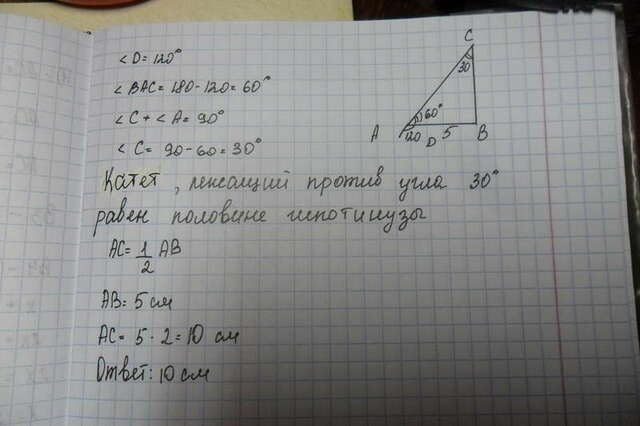 ∠D=120°
∠BAC=180-120=60°
∠C+∠A=90°
∠C=90-60=30°
Катет, лежащий против угла 30°
равен половине гипотинузы
AC=1/2 AB
AB=5 см
AC=5·2=10 см
Ответ: 10 см
C
30
60°
A
120
D
5
B